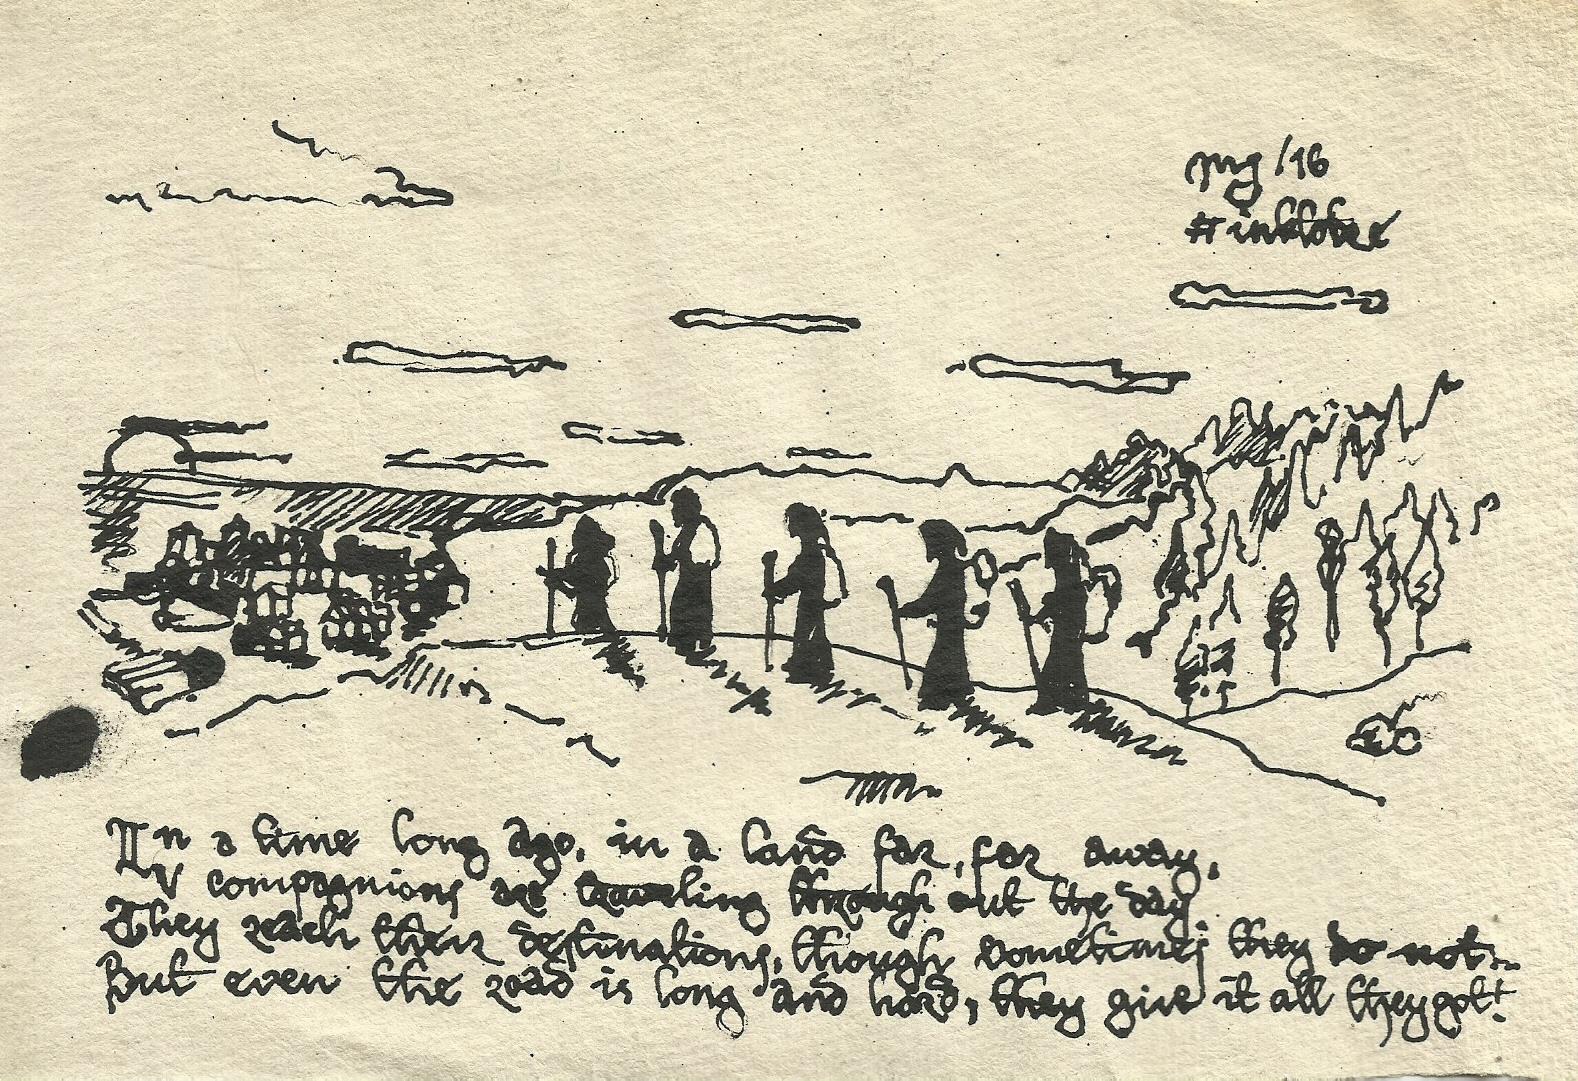 mg /16
#inktober
In a time long ago, in a land far, far away,
V compagnions are traveling through out the day
They reach their destinations, though sometimes they do not...
But even the road is long and hard, they give it all they got!